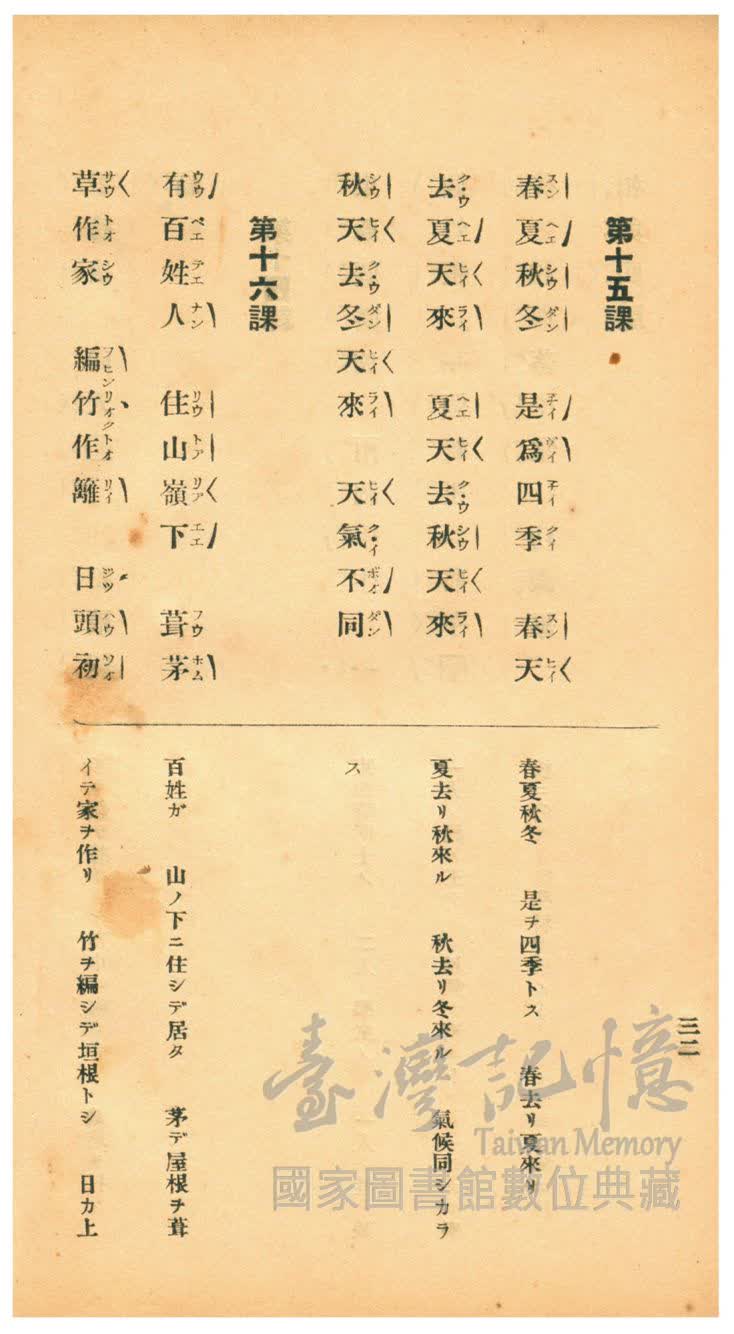 三二
第十五課
春夏秋冬是爲四季春天
去夏天來夏天去秋天來
秋天去冬天來天氣不同
第十六課
有百姓人住山嶺下葺茅
草作家編竹作籬日頭初
春夏秋冬 是ヲ四季トス 春去リ夏來リ
夏去リ秋來ル 秋去リ冬來ル 氣候同シカラ
ス
百姓ガ 山ノ下ニ住シデ居タ 茅デ屋根ヲ葺
イテ家ヲ作リ 竹ヲ編シデ垣根トシ 日カ上
臺灣記憶
Taiwan Memory
國家圖書館數位典藏